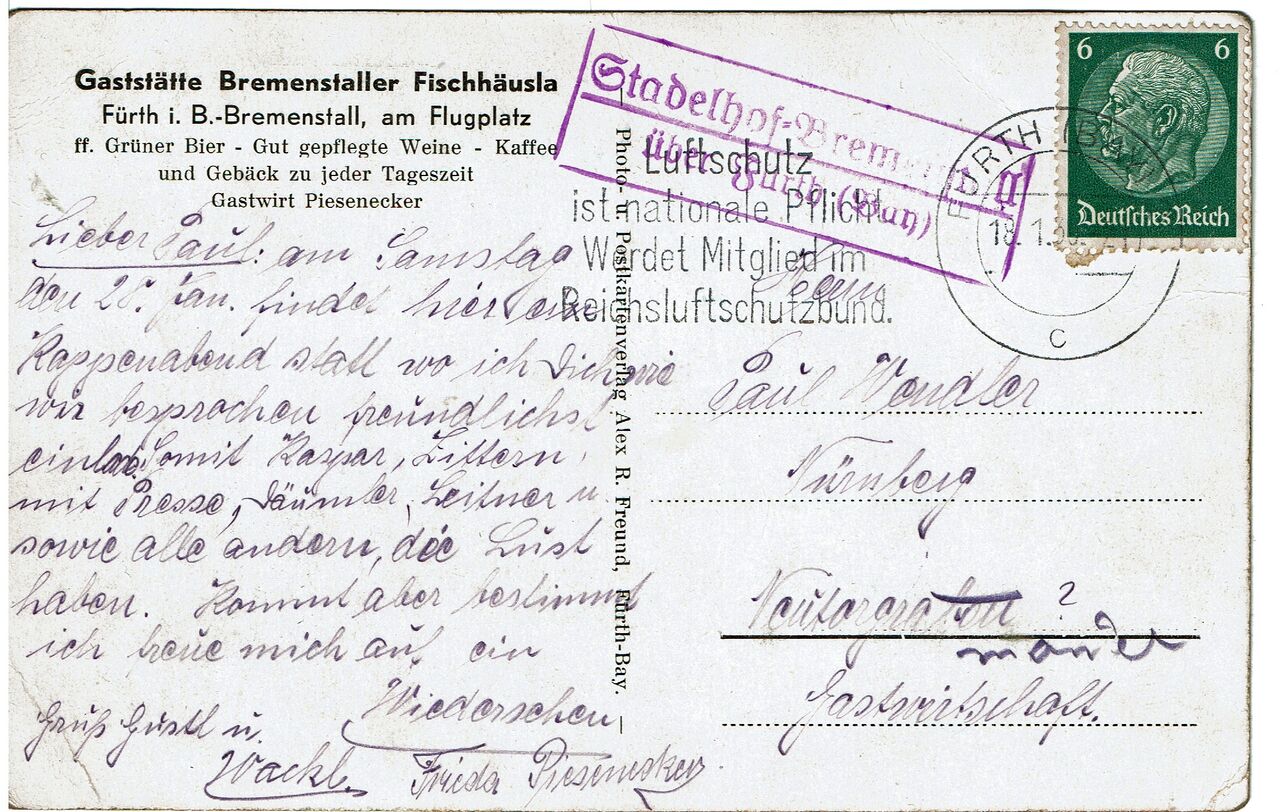 Gaststätte Bremenstaller Fischhäusla
Fürth i. B.-Bremenstall, am Flugplatz
ff. Grüner Bier - Gut gepflegte Weine - Kaffee
und Gebäck zu jeder Tageszeit
Gastwirt Piesenecker
Lieber Paul: am Samstag
den 28. Jan. findet hier ein
Kappenabend statt wo ich Dich wie
wir besprochen freundlichst
einlade. Somit Kaspar,
mit Presse, Däumler, Leitner u.
sowie alle andern, die Lust
haben. Kommt aber bestimmt
ich freue mich auf ein
Wiedersehen
Gruß Gustl u.
Wackl.
Frieda Piesenecker
Photo- u. Postkartenverlag Alex R. Freund, Fürth-Bay.
Stadelhof-Bremenstall
über Fürth (Bay)
Luftschutz
ist nationale Pflicht
Werdet Mitglied im
Reichsluftschutzbund.
FÜRTH (BAY)
18. 1.
c
6 6
Deutsches Reich
Herrn
Paul Wendler
Nürnberg
Neutorgraben ?
Gastwirtschaft.